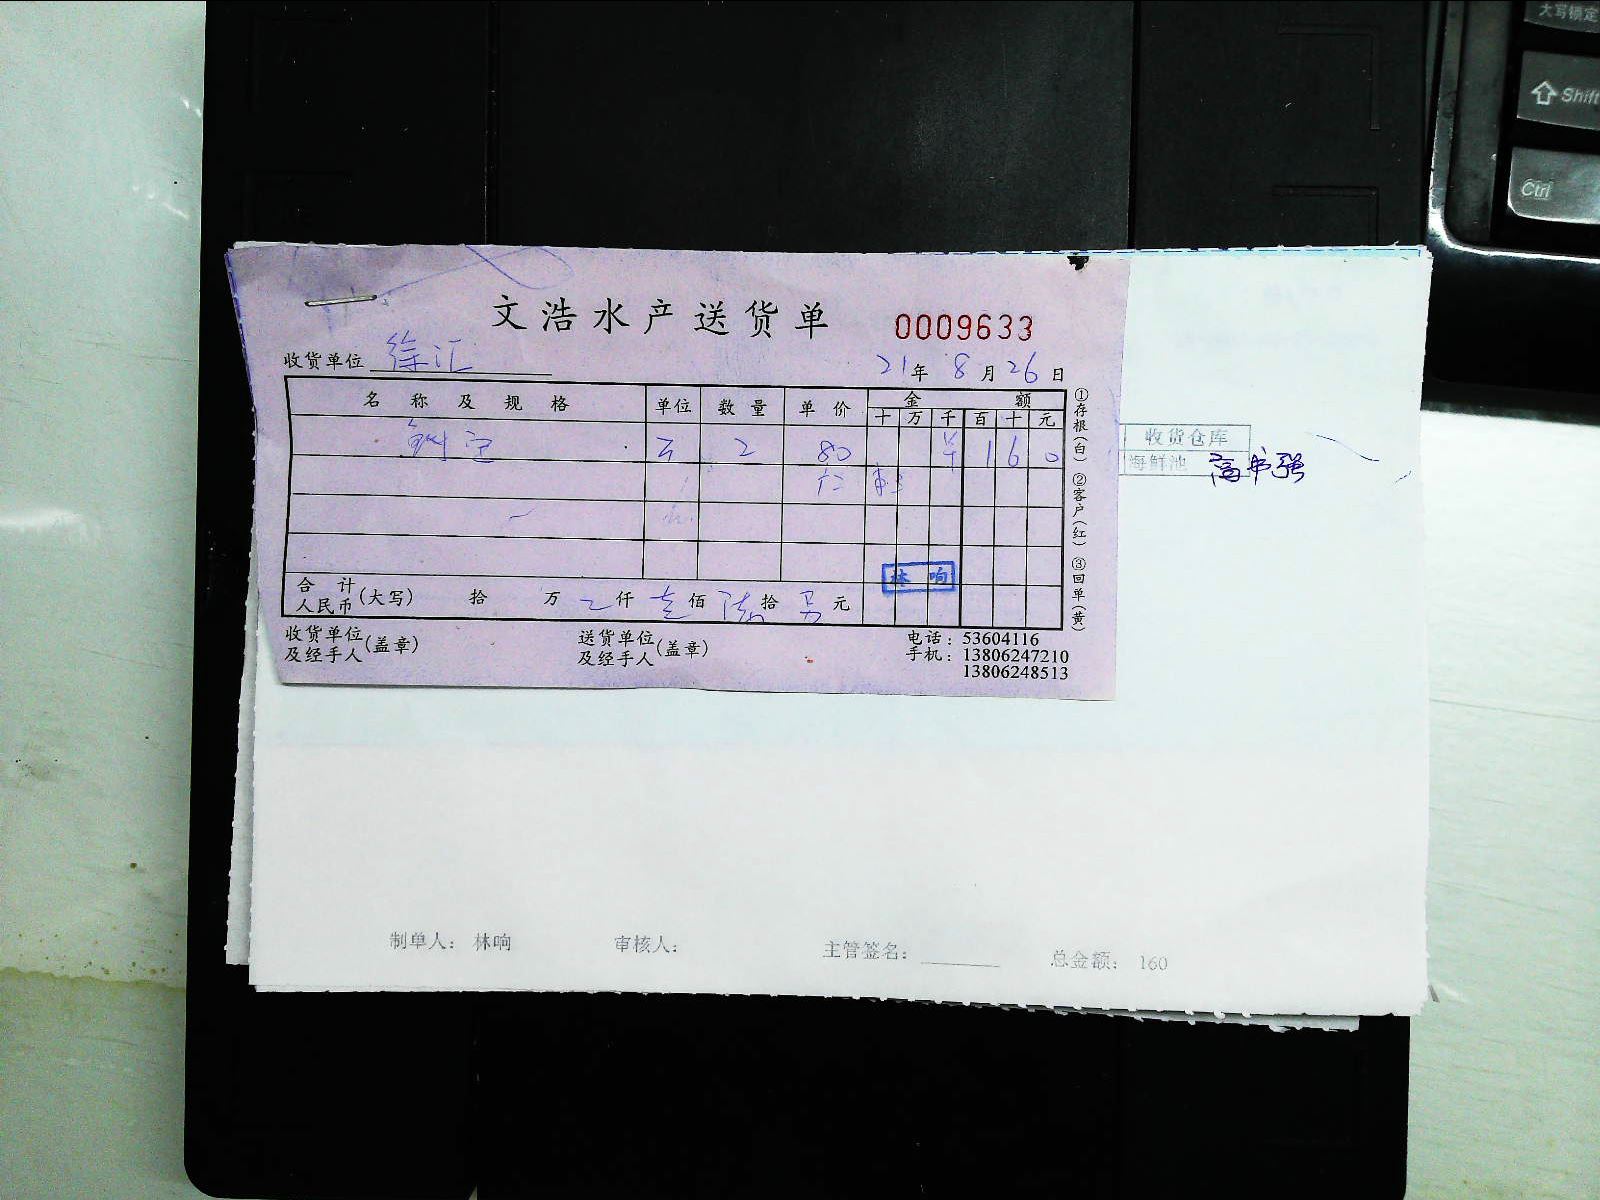 大写锁定
Shift
Ctrl
文浩水产送货单
0009633
收货单位 徐汇
21年 8月 26日
名称及规格 单位 数量 单价 金额
十 万 千 百 十 元
2 80 ¥ 1 6 0
林响
合计 人民币(大写) 拾 万 仟 壹佰 陆拾 元
收货单位及经手人(盖章) 送货单位及经手人(盖章)
电话:53604116
手机:13806247210
13806248513
①存根(白) ②客户(红) ③回单(黄)
收货仓库
海鲜池 高书强
制单人: 林响 审核人: 主管签名: 总金额: 160